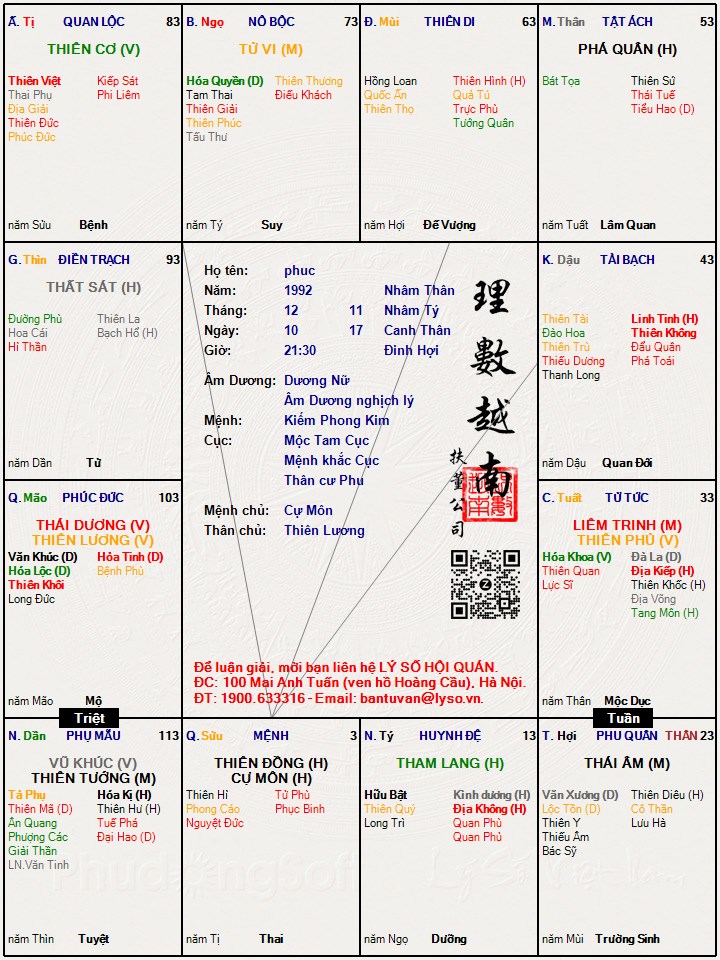 Ấ. Tị QUAN LỘC 83
THIÊN CƠ (V)
Thiên Việt Kiếp Sát
Thai Phụ Phi Liêm
Địa Giải
Thiên Đức
Phúc Đức
năm Sửu Bệnh
B. Ngọ NÔ BỘC 73
TỬ VI (M)
Hóa Quyền (D) Thiên Thương
Tam Thai Điếu Khách
Thiên Giải
Thiên Phúc
Tấu Thư
năm Tý Suy
Đ. Mùi THIÊN DI 63
Hồng Loan Thiên Hình (H)
Quốc Ấn Quả Tú
Thiên Thọ Trực Phù
Tướng Quân
năm Hợi Đế Vượng
M. Thân TẬT ÁCH 53
PHÁ QUÂN (H)
Bát Tọa Thiên Sứ
Thái Tuế
Tiểu Hao (D)
năm Tuất Lâm Quan
G. Thìn ĐIỀN TRẠCH 93
THẤT SÁT (H)
Đường Phù Thiên La
Hoa Cái Bạch Hổ (H)
Hỉ Thần
năm Dần Tử
Họ tên: phuc
Năm: 1992 Nhâm Thân
Tháng: 12 11 Nhâm Tý
Ngày: 10 17 Canh Thân
Giờ: 21:30 Đinh Hợi
Âm Dương: Dương Nữ
Âm Dương nghịch lý
Mệnh: Kiếm Phong Kim
Cục: Mộc Tam Cục
Mệnh khắc Cục
Thân cư Phu
Mệnh chủ: Cự Môn
Thân chủ: Thiên Lương
理數越南
扶董公司
Để luận giải, mời bạn liên hệ LÝ SỐ HỘI QUÁN.
ĐC: 100 Mai Anh Tuấn (ven hồ Hoàng Cầu), Hà Nội.
ĐT: 1900.633316 - Email: bantuvan@lyso.vn.
K. Dậu TÀI BẠCH 43
Thiên Tài Linh Tinh (H)
Đào Hoa Thiên Không
Thiên Trù Đẩu Quân
Thiếu Dương Phá Toái
Thanh Long
năm Dậu Quan Đới
Q. Mão PHÚC ĐỨC 103
THÁI DƯƠNG (V)
THIÊN LƯƠNG (V)
Văn Khúc (D) Hỏa Tinh (D)
Hóa Lộc (D) Bệnh Phù
Thiên Khôi
Long Đức
năm Mão Mộ
C. Tuất TỬ TỨC 33
LIÊM TRINH (M)
THIÊN PHỦ (V)
Hóa Khoa (V) Đà La (D)
Thiên Quan Địa Kiếp (H)
Lực Sĩ Thiên Khốc (H)
Địa Võng
Tang Môn (H)
năm Thân Mộc Dục
Triệt
Tuần
N. Dần PHỤ MẪU 113
VŨ KHÚC (V)
THIÊN TƯỚNG (M)
Tả Phụ Hóa Kị (H)
Thiên Mã (D) Thiên Hư (H)
Ân Quang Tuế Phá
Phượng Các Đại Hao (D)
Giải Thần
LN.Văn Tinh
năm Thìn Tuyệt
Q. Sửu MỆNH 3
THIÊN ĐỒNG (H)
CỰ MÔN (H)
Thiên Hỉ Tử Phù
Phong Cáo Phục Binh
Nguyệt Đức
năm Tị Thai
N. Tý HUYNH ĐỆ 13
THAM LANG (H)
Hữu Bật Kình dương (H)
Thiên Quý Địa Không (H)
Long Trì Quan Phù
Quan Phủ
năm Ngọ Dưỡng
T. Hợi PHU QUÂN THÂN 23
THÁI ÂM (M)
Văn Xương (D) Thiên Diêu (H)
Lộc Tồn (D) Cô Thần
Thiên Y Lưu Hà
Thiếu Âm
Bác Sỹ
năm Mùi Trường Sinh